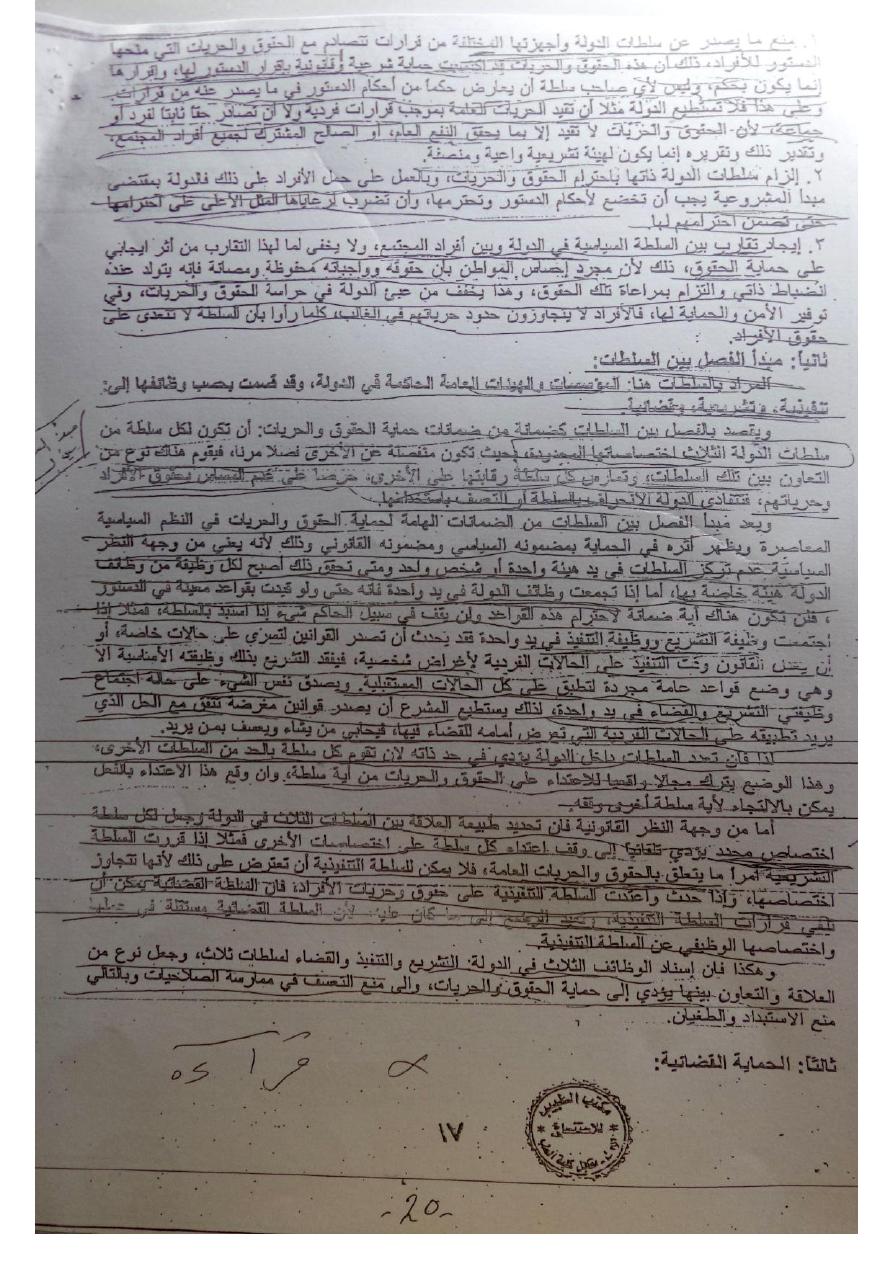 ١. منع ما يصدر عن سلطات الدولة وأجهزتها المختلفة من قرارات تتصادم مع الحقوق والحريات التي منحها
الدستور للأفراد، ذلك أن هذه الحقوق والحريات قد اكتسبت حماية شرعية وقانونية بإقرار الدستور لها، وإقرارها
إنما يكون بحكم، وليس لأي صاحب سلطة أن يعارض حكماً من أحكام الدستور في ما يصدر عنه من قرارات.
وعلى هذا فلا تستطيع الدولة مثلا أن تقيد الحريات العامة بموجب قرارات فردية ولا أن تصادر حقاً ثابتا لفرد أو
جماعة، لأن الحقوق والحريات لا تقيد إلا بما يحقق النفع العام، أو الصالح المشترك لجميع أفراد المجتمع.
وتقدير ذلك وتقريره إنما يكون لهيئة تشريعية واعية ومنصفة.
٢. إلزام سلطات الدولة ذاتها باحترام الحقوق والحريات، وبالعمل على حمل الأفراد على ذلك فالدولة بمقتضى
مبدأ المشروعية يجب أن تخضع لأحكام الدستور وتحترمها، وأن تضرب لرعاياها المثل الأعلى على احترامها
حتى تضمن احترامهم لها.
٣. إيجاد تقارب بين السلطة السياسية في الدولة وبين أفراد المجتمع، ولا يخفى لما لهذا التقارب من أثر ايجابي
على حماية الحقوق، ذلك لأن مجرد إحساس المواطن بأن حقوقه وواجباته محفوظة ومصانة فإنه يتولد عنده
انضباط ذاتي والتزام بمراعاة تلك الحقوق، وهذا يخفف من عبئ الدولة في حراسة الحقوق والحريات، وفي
توفير الأمن والحماية لها، فالأفراد لا يتجاوزون حدود حرياتهم في الغالب، كلما رأوا بأن السلطة لا تتعدى على
حقوق الأفراد.
ثانياً: مبدأ الفصل بين السلطات:
المراد بالسلطات هنا: المؤسسات والهيئات العامة الحاكمة في الدولة، وقد قسمت بحسب وظائفها إلى:
تنفيذية، وتشريعية، وقضائية.
ويقصد بالفصل بين السلطات كضمانة من ضمانات حماية الحقوق والحريات: أن تكون لكل سلطة من
سلطات الدولة الثلاث اختصاصاتها المحدودة، بحيث تكون منفصلة عن الأخرى فصلا مرنا، فيقوم هناك نوع من
التعاون بين تلك السلطات، وتمارس كل سلطة رقابتها على الأخرى، حرصا على عدم المساس بحقوق الأفراد
وحرياتهم، فتتفادى الدولة الانحراف بالسلطة أو التعسف باستخدامها.
ويعد مبدأ الفصل بين السلطات من الضمانات الهامة لحماية الحقوق والحريات في النظم السياسية
المعاصرة ويظهر أثره في الحماية بمضمونه السياسي ومضمونه القانوني وذلك لأنه يعني من وجهة النظر
السياسية عدم تركز السلطات في يد هيئة واحدة أو شخص واحد ومتى تحقق ذلك أصبح لكل وظيفة من وظائف
الدولة هيئة خاصة بها، أما إذا تجمعت وظائف الدولة في يد واحدة فانه حتى ولو قيدت بقواعد معينة في الدستور
، فلن يكون هناك أية ضمانة لاحترام هذه القواعد ولن يقف في سبيل الحاكم شيء إذا استبد بالسلطة، فمثلا إذا
اجتمعت وظيفة التشريع ووظيفة التنفيذ في يد واحدة فقد يحدث أن تصدر القوانين لتسري على حالات خاصة، أو
أن يعدل القانون وقت التنفيذ على الحالات الفردية لأغراض شخصية، فيفقد التشريع بذلك وظيفته الأساسية ألا
وهي وضع قواعد عامة مجردة لتطبق على كل الحالات المستقبلية. ويصدق نفس الشيء على حالة اجتماع
وظيفتي التشريع والقضاء في يد واحدة، لذلك يستطيع المشرع أن يصدر قوانين مغرضة تتفق مع الحل الذي
يريد تطبيقه على الحالات الفردية التي تعرض أمامه للقضاء فيها، فيحابي من يشاء ويعسف بمن يريد.
لذا فان تعدد السلطات داخل الدولة يؤدي في حد ذاته لان تقوم كل سلطة بالحد من السلطات الأخرى،
وهذا الوضع يترك مجالا واقعيا للاعتداء على الحقوق والحريات من أية سلطة، وان وقع هذا الاعتداء بالفعل
يمكن بالالتجاء لأية سلطة أخرى وقفه.
أما من وجهة النظر القانونية فان تحديد طبيعة العلاقة بين السلطات الثلاث في الدولة وجعل لكل سلطة
اختصاص محدد يؤدي تلقائيا إلى وقف اعتداء كل سلطة على اختصاصات الأخرى فمثلا إذا قررت السلطة
التشريعية أمرا ما يتعلق بالحقوق والحريات العامة، فلا يمكن للسلطة التنفيذية أن تعترض على ذلك لأنها تتجاوز
اختصاصها، وإذا حدث واعتدت السلطة التنفيذية على حقوق وحريات الأفراد، فان السلطة القضائية يمكن أن
تلغي قرارات السلطة التنفيذية، وتعيد الوضع إلى ما كان عليه، لأن السلطة القضائية مستقلة في عملها
واختصاصها الوظيفي عن السلطة التنفيذية.
وهكذا فان إسناد الوظائف الثلاث في الدولة: التشريع والتنفيذ والقضاء لسلطات ثلاث، وجعل نوع من
العلاقة والتعاون بينها يؤدي إلى حماية الحقوق والحريات، والى منع التعسف في ممارسة الصلاحيات وبالتالي
منع الاستبداد والطغيان.
ثالثا: الحماية القضائية:
مكتب الطبيب
للاستنساخ
١٧
-20-